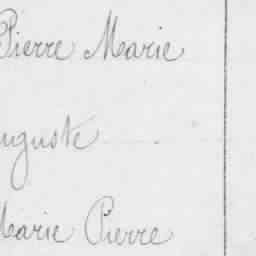 Pierre Marie
uguste
Marie Pierre